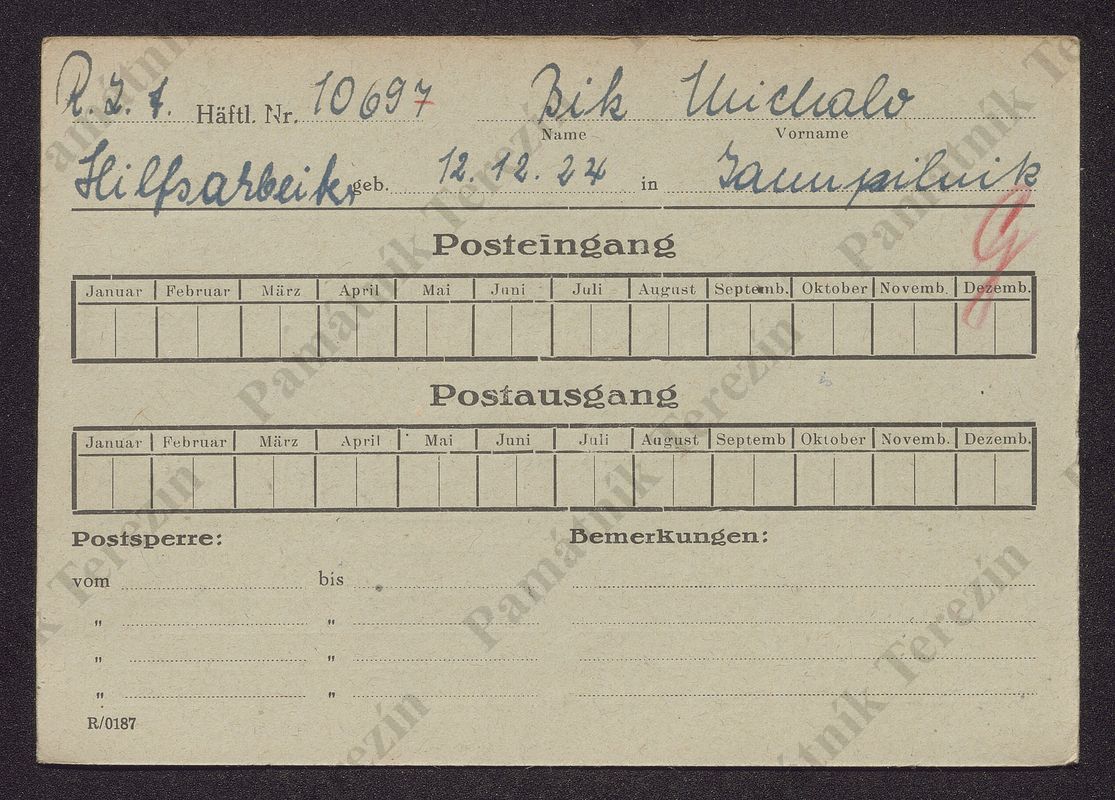 R. Z. 1. Häftl. Nr. 10697 Bik Michalo
Name Vorname
Hilfsarbeiter geb. 12.12.24 in Jaumpilnik
G
Posteingang
Januar Februar März April Mai Juni Juli August Septemb. Oktober Novemb. Dezemb.
Postausgang
Januar Februar März April Mai Juni Juli August Septemb Oktober Novemb. Dezemb.
Postsperre: Bemerkungen:
vom bis
" "
" "
" "
R/0187
Památník Terezín